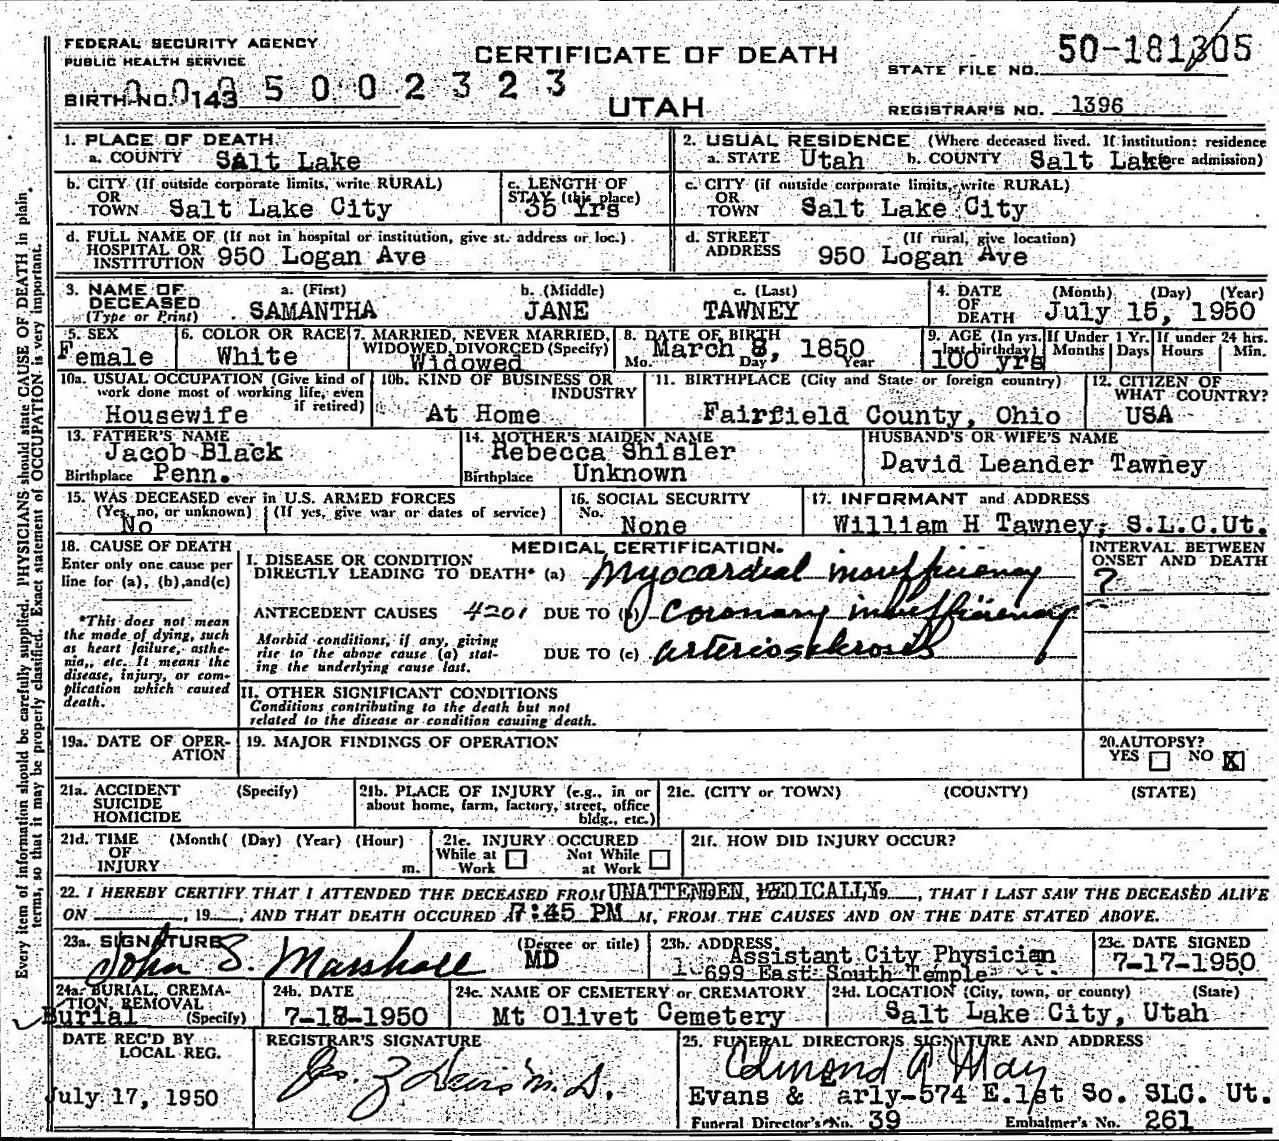 FEDERAL SECURITY AGENCY
PUBLIC HEALTH SERVICE
CERTIFICATE OF DEATH
UTAH
STATE FILE NO. 50-181305
BIRTH NO. 143 5002323
REGISTRAR'S NO. 1396
1. PLACE OF DEATH
a. COUNTY Salt Lake
2. USUAL RESIDENCE (Where deceased lived. If institution: residence before admission)
a. STATE Utah b. COUNTY Salt Lake
b. CITY (If outside corporate limits, write RURAL)
OR TOWN Salt Lake City
c. LENGTH OF STAY (this place)
35 Yrs
c. CITY (if outside corporate limits, write RURAL)
OR TOWN Salt Lake City
d. FULL NAME OF (If not in hospital or institution, give st. address or loc.)
HOSPITAL OR INSTITUTION 950 Logan Ave
d. STREET ADDRESS (If rural, give location)
950 Logan Ave
3. NAME OF DECEASED (Type or Print)
a. (First) b. (Middle) c. (Last)
SAMANTHA JANE TAWNEY
4. DATE OF DEATH (Month) (Day) (Year)
July 15, 1950
5. SEX
Female
6. COLOR OR RACE
White
7. MARRIED, NEVER MARRIED, WIDOWED, DIVORCED (Specify)
Widowed
8. DATE OF BIRTH
March 8, 1850
Mo. Day Year
9. AGE (In yrs. last birthday)
100 yrs
If Under 1 Yr. Months Days
If under 24 hrs. Hours Min.
10a. USUAL OCCUPATION (Give kind of work done most of working life, even if retired)
Housewife
10b. KIND OF BUSINESS OR INDUSTRY
At Home
11. BIRTHPLACE (City and State or foreign country)
Fairfield County, Ohio
12. CITIZEN OF WHAT COUNTRY?
USA
13. FATHER'S NAME
Jacob Black
Birthplace Penn.
14. MOTHER'S MAIDEN NAME
Rebecca Shisler
Birthplace Unknown
HUSBAND'S OR WIFE'S NAME
David Leander Tawney
15. WAS DECEASED ever in U.S. ARMED FORCES
(Yes, no, or unknown) (If yes, give war or dates of service)
No
16. SOCIAL SECURITY No.
None
17. INFORMANT and ADDRESS
William H Tawney, S.L.C.Ut.
18. CAUSE OF DEATH
Enter only one cause per line for (a), (b), and (c)
*This does not mean the mode of dying, such as heart failure, asthenia, etc. It means the disease, injury, or complication which caused death.
MEDICAL CERTIFICATION.
INTERVAL BETWEEN ONSET AND DEATH
I. DISEASE OR CONDITION
DIRECTLY LEADING TO DEATH* (a) Myocardial insufficiency
?
ANTECEDENT CAUSES 4201 DUE TO (b) coronary insufficiency
Morbid conditions, if any, giving rise to the above cause (a) stating the underlying cause last.
DUE TO (c) arteriosclerosis
II. OTHER SIGNIFICANT CONDITIONS
Conditions contributing to the death but not related to the disease or condition causing death.
19a. DATE OF OPERATION
19. MAJOR FINDINGS OF OPERATION
20. AUTOPSY?
YES NO X
21a. ACCIDENT SUICIDE HOMICIDE (Specify)
21b. PLACE OF INJURY (e.g., in or about home, farm, factory, street, office bldg., etc.)
21c. (CITY or TOWN) (COUNTY) (STATE)
21d. TIME OF INJURY (Month( (Day) (Year) (Hour) m.
21e. INJURY OCCURED
While at Work Not While at Work
21f. HOW DID INJURY OCCUR?
22. I HEREBY CERTIFY THAT I ATTENDED THE DECEASED FROM UNATTENDEN, MEDICALLY 19 , THAT I LAST SAW THE DECEASED ALIVE
ON , 19 , AND THAT DEATH OCCURED 7:45 PM M, FROM THE CAUSES AND ON THE DATE STATED ABOVE.
23a. SIGNATURE (Degree or title)
John S. Marshall MD
23b. ADDRESS
Assistant City Physician
699 East South Temple
23c. DATE SIGNED
7-17-1950
24a. BURIAL, CREMATION, REMOVAL (Specify)
Burial
24b. DATE
7-18-1950
24c. NAME OF CEMETERY or CREMATORY
Mt Olivet Cemetery
24d. LOCATION (City, town, or county) (State)
Salt Lake City, Utah
DATE REC'D BY LOCAL REG.
July 17, 1950
REGISTRAR'S SIGNATURE
25. FUNERAL DIRECTOR'S SIGNATURE AND ADDRESS
Edmond A May
Evans & arly-574 E.1st So. SLC. Ut.
Funeral Director's No. 39 Embalmer's No. 261
Every item of information should be carefully supplied. PHYSICIANS should state CAUSE OF DEATH in plain
terms, so that it may be properly classified. Exact statement of OCCUPATION is very important.